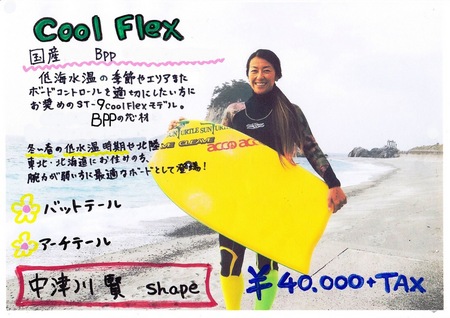 Cool Flex
国産 Bpp
低海水温の季節やエリアまた
ボードコントロールを適切にしたい方に
お奨めのST-9 Cool Flexモデル。
BPPの芯材
冬〜春の低水温時期や北陸
東北・北海道にお住けの方、
腕力が弱い方に最適なボードとして登場!
TURTLE SUN TURTLE SUN
acco acco
バットテール
アーチテール
中津川 賢 Shape
¥40.000+TAX